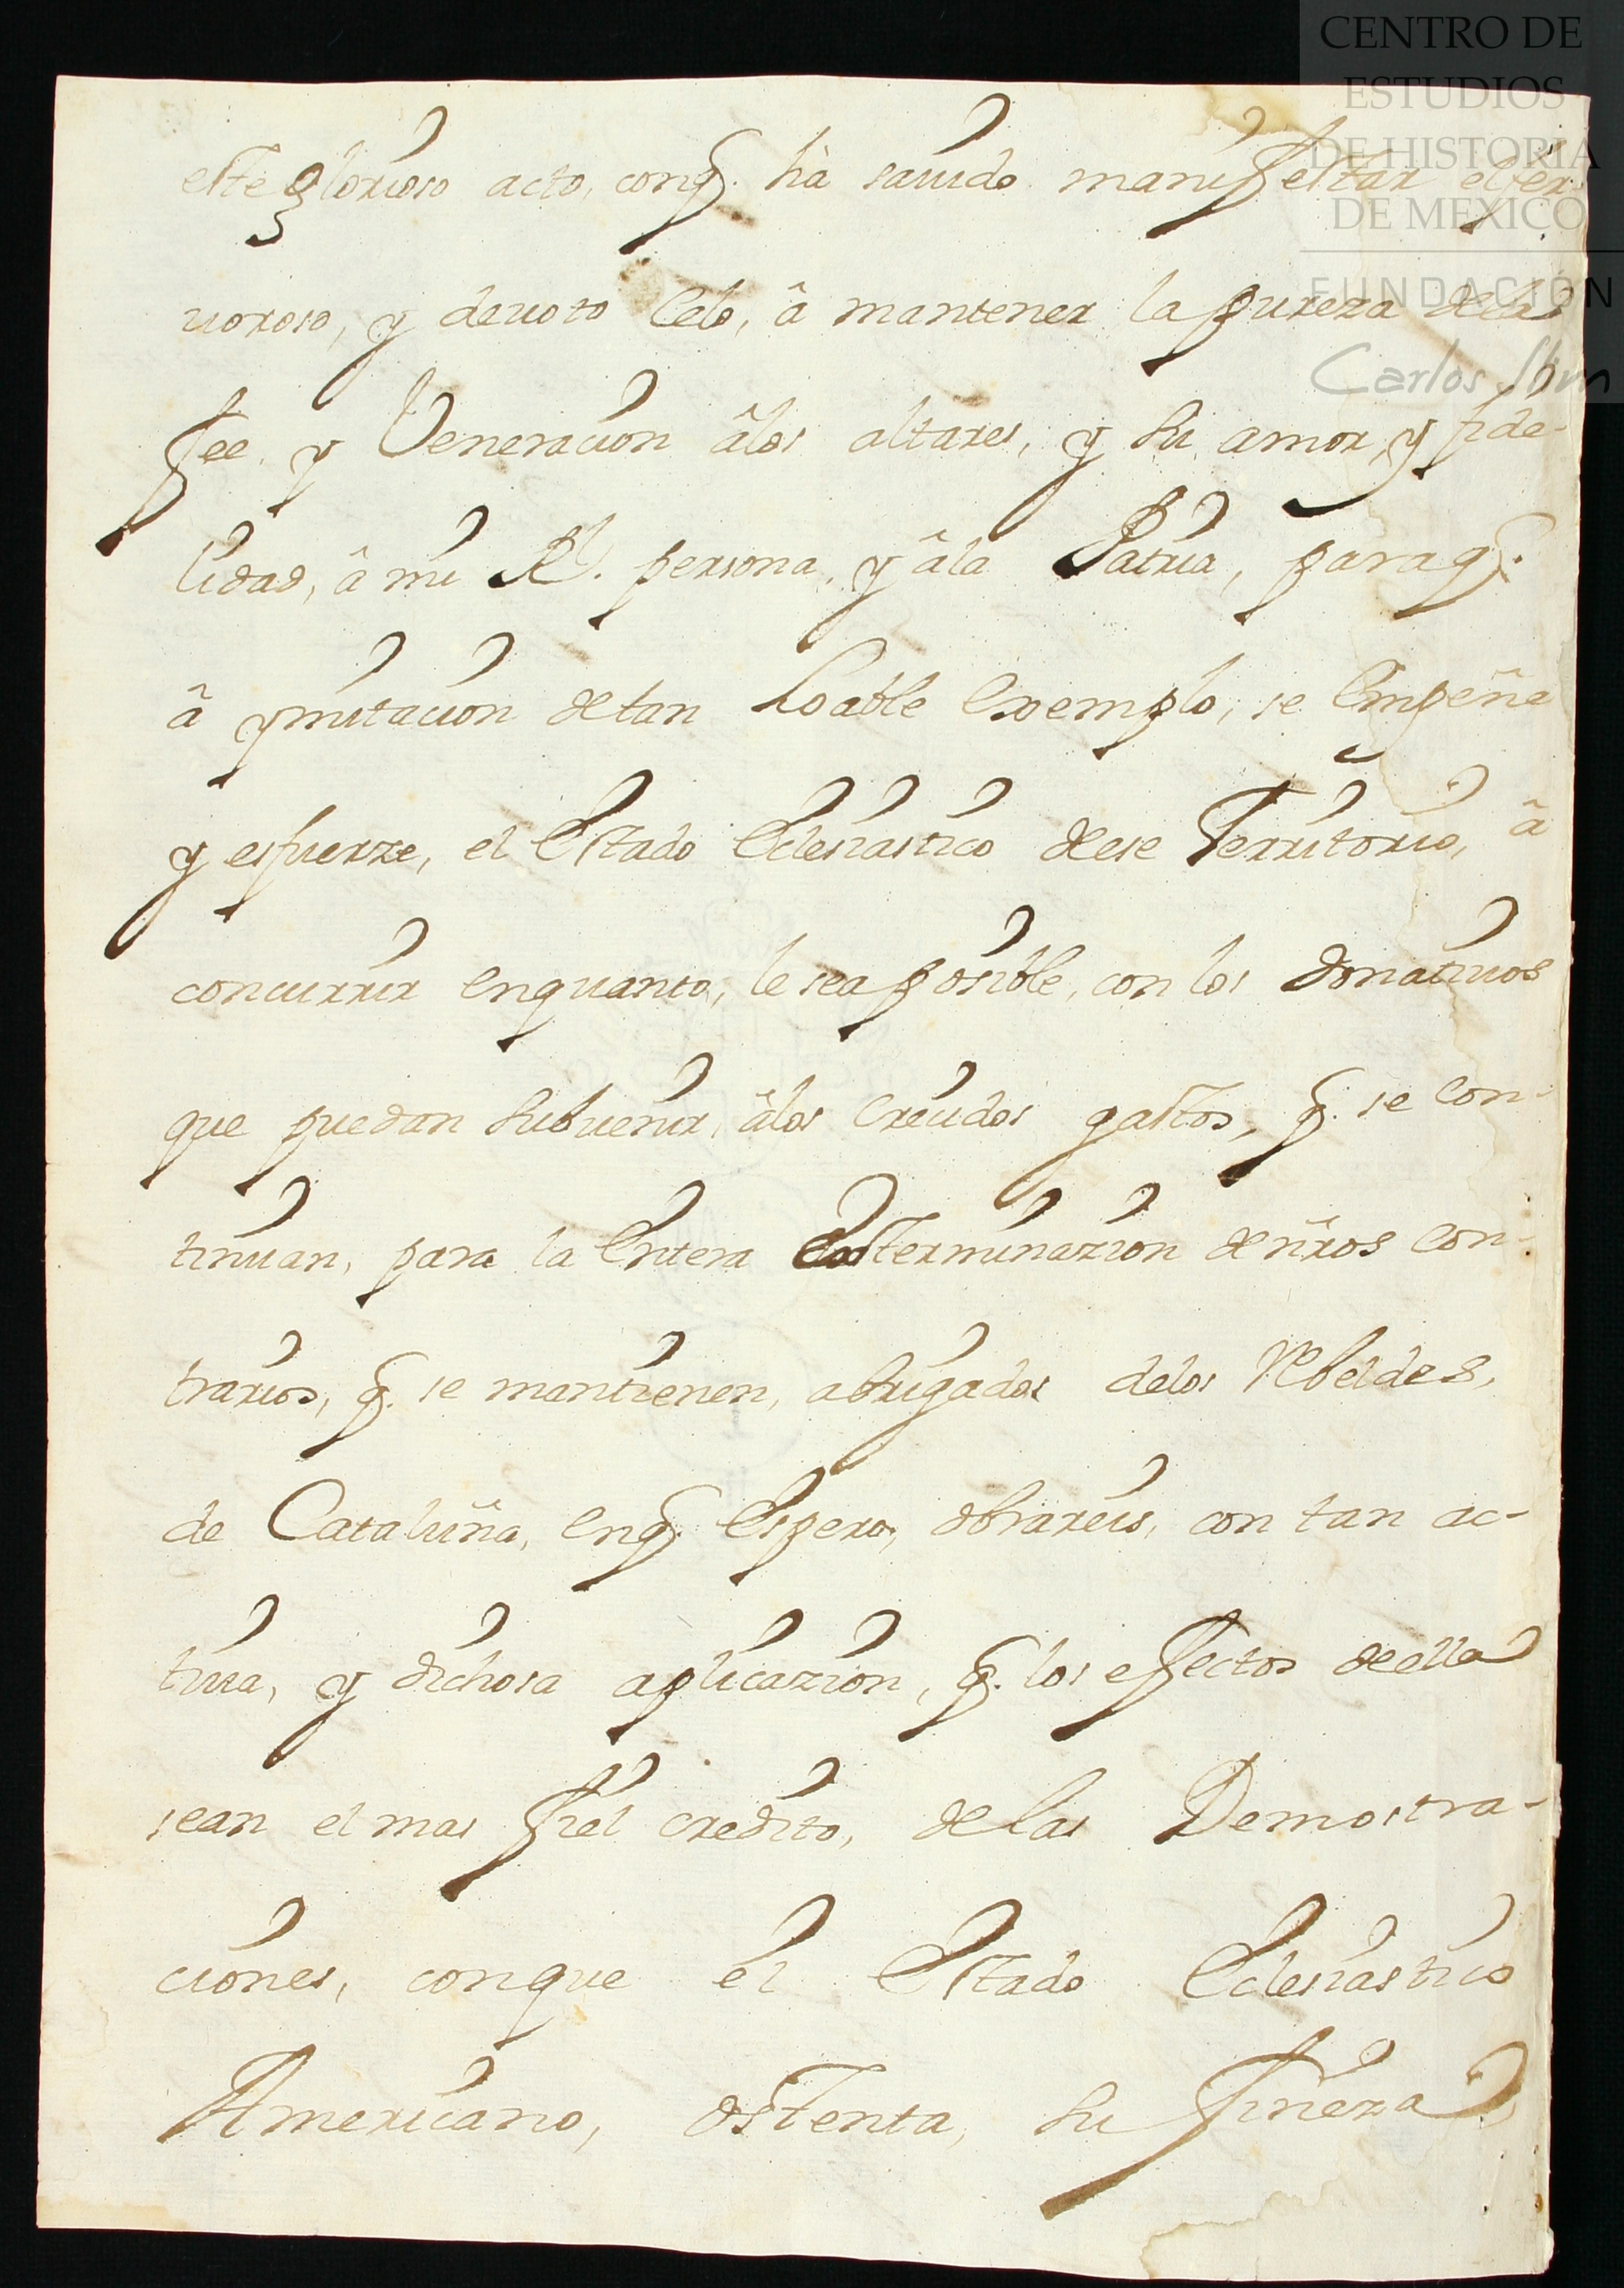 CENTRO DE
ESTUDIOS
DE HISTORIA
DE MEXICO
FUNDACIÓN
Carlos Slim
este glorioso acto, conq̃. hà sauido manifestar el fer-
uoroso, y deuoto Celo, â mantener la pureza dela
fee, y Veneracion âlos altares, y su amor, y fide-
lidad, â mi Rl. persona, y âla Patria, paraq̃.
â ymitacion detan Loable Exemplo, se Empeñe
y esfuerze, el Estado Eclesiastico deese Territorio, â
concurrir enquanto, le sea posible, con los donatiuos
que puedan subuenir, âlos Crecidos gastos, q̃. se con-
tinuan, para la Entera Exterminazion de ñros con-
trarios, q̃. se mantienen, abrigados delos Rebeldes,
de Cataluña, enq̃. Espero, obrareis, con tan ac-
tiua, y dichosa aplicazion, q̃. los efectos deella
sean el mas fiel credito, de las Demostra-
ciones, conque el Estado Eclesiastico
Americano, ostenta, su fineza